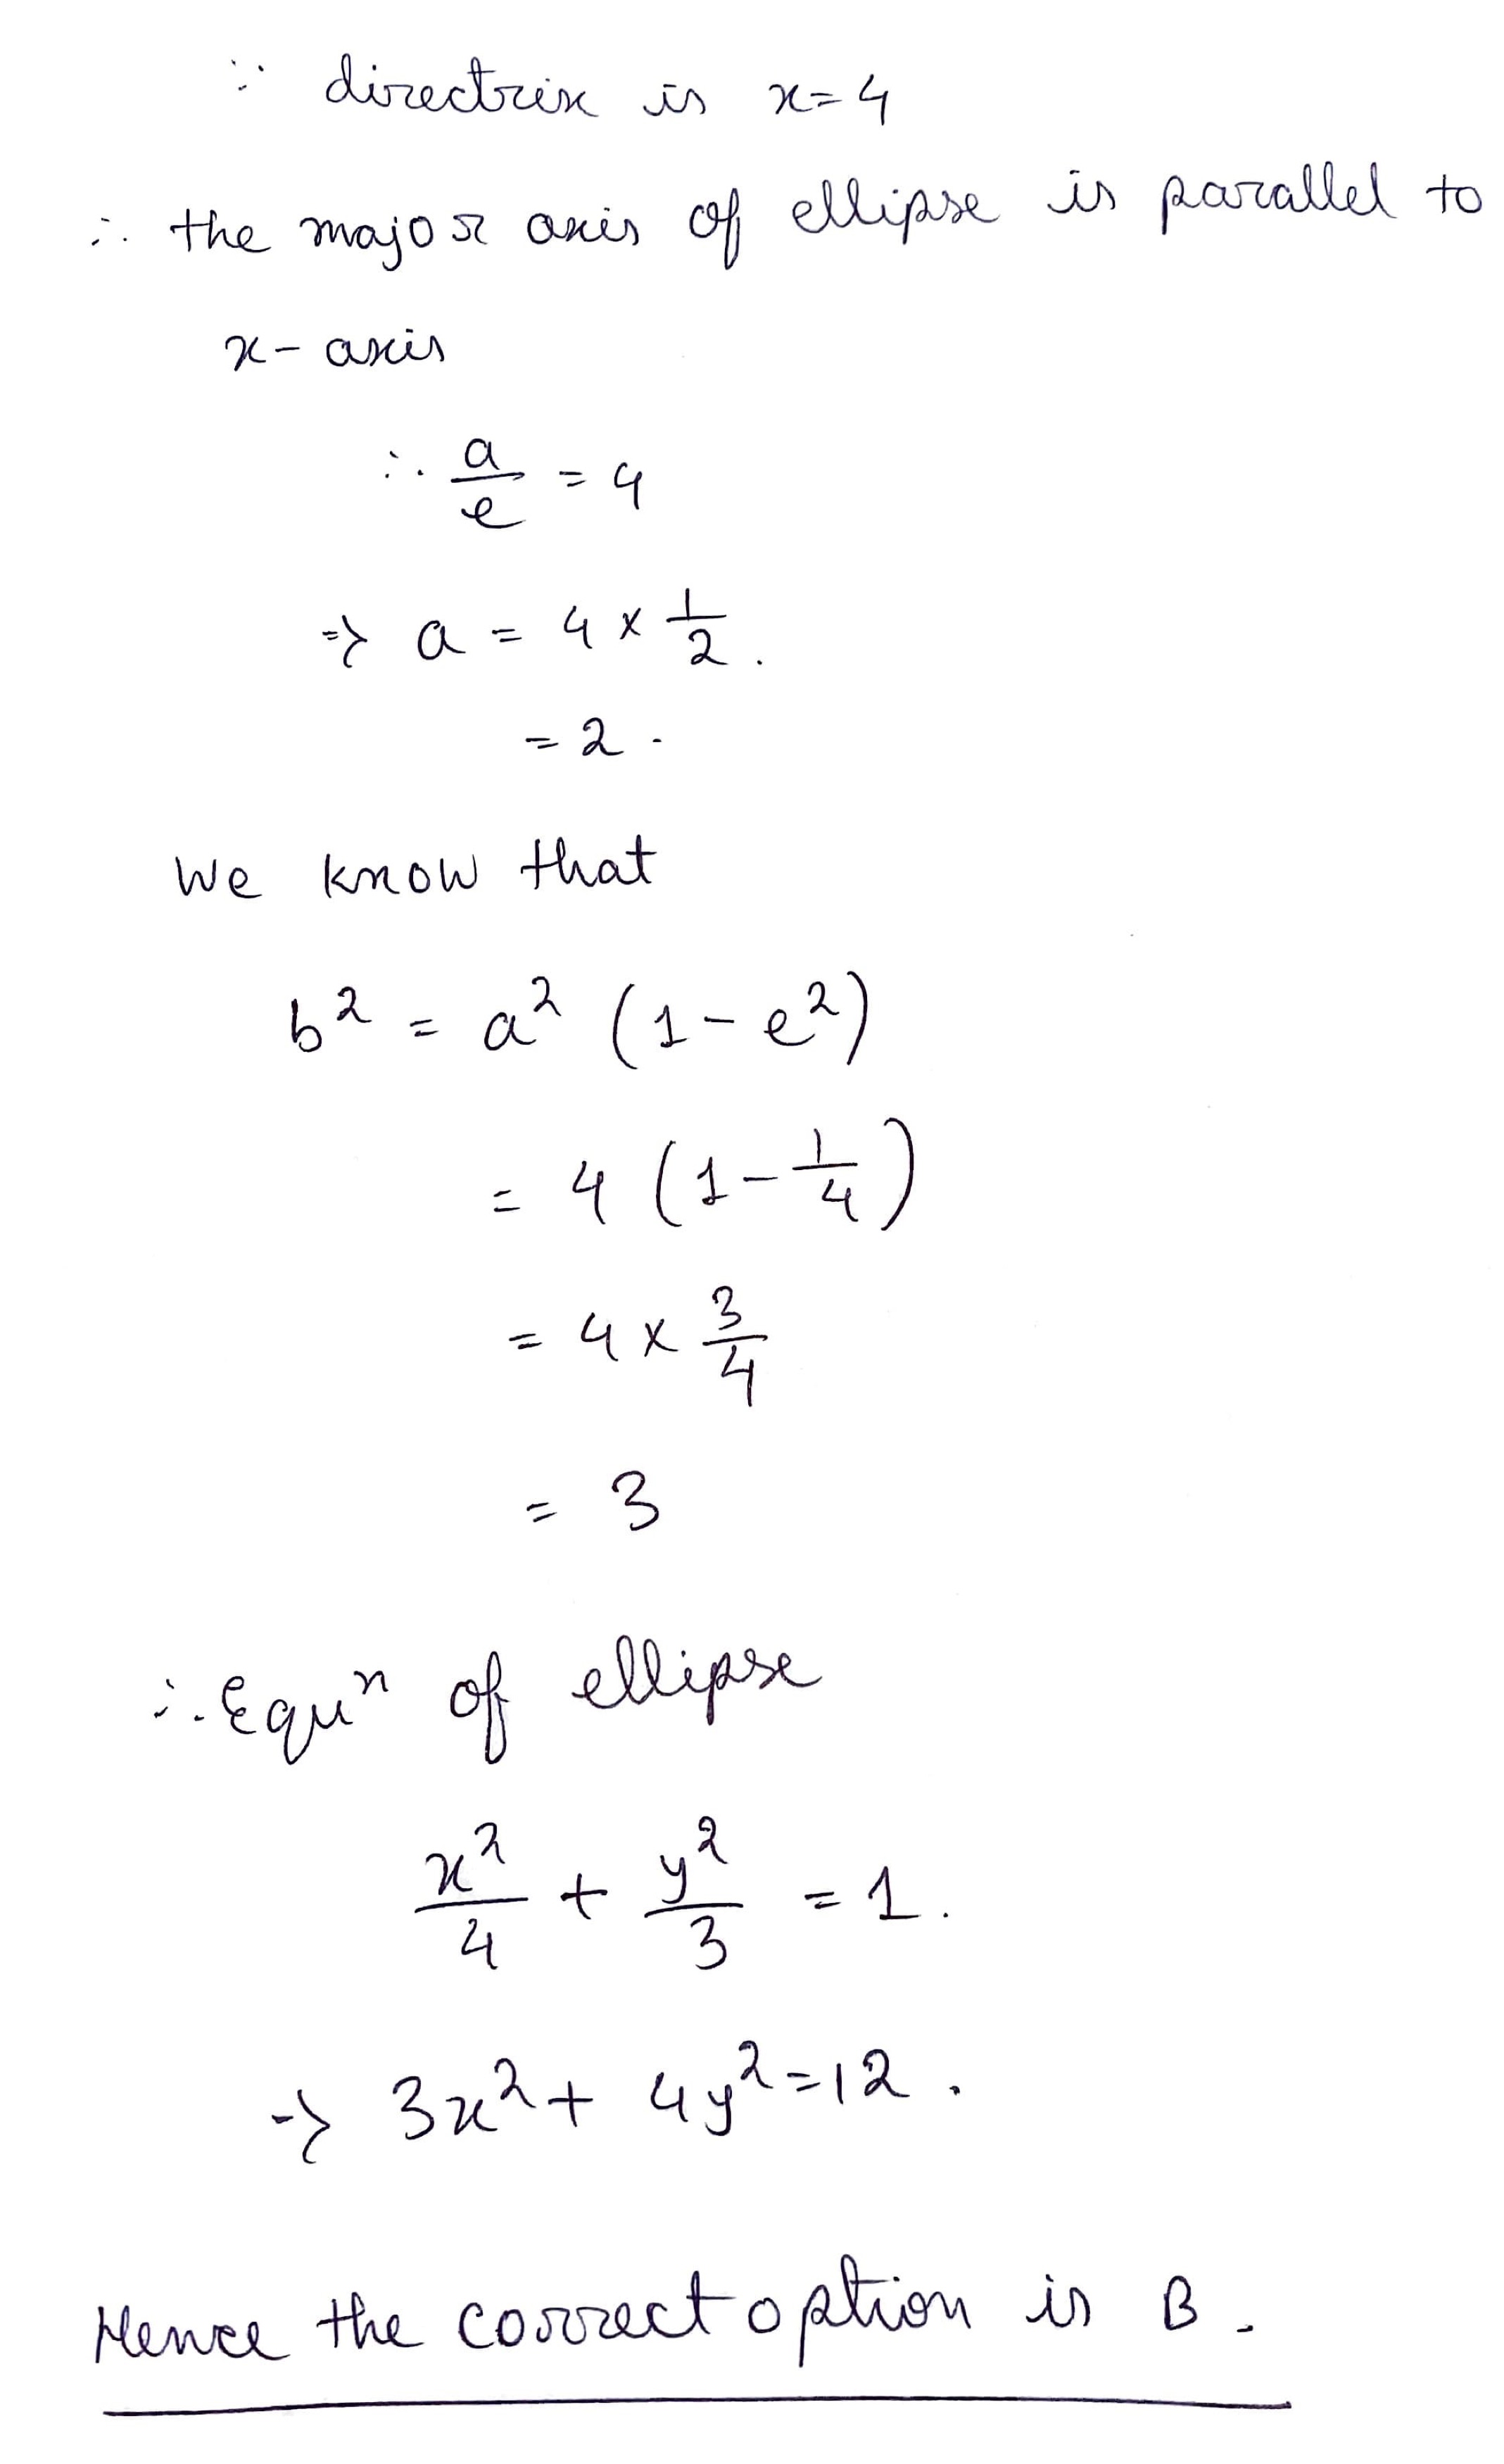 ∵ directrix is x=4
∴ the major axis of ellipse is parallel to
x-axis
∴ a/e = 4
⇒ a = 4 × 1/2.
= 2.
We know that
b² = a² (1-e²)
= 4 (1-1/4)
= 4 × 3/4
= 3
∴ Equⁿ of ellipse
x²/4 + y²/3 = 1.
→ 3x² + 4y² = 12.
Hence the correct option is B.